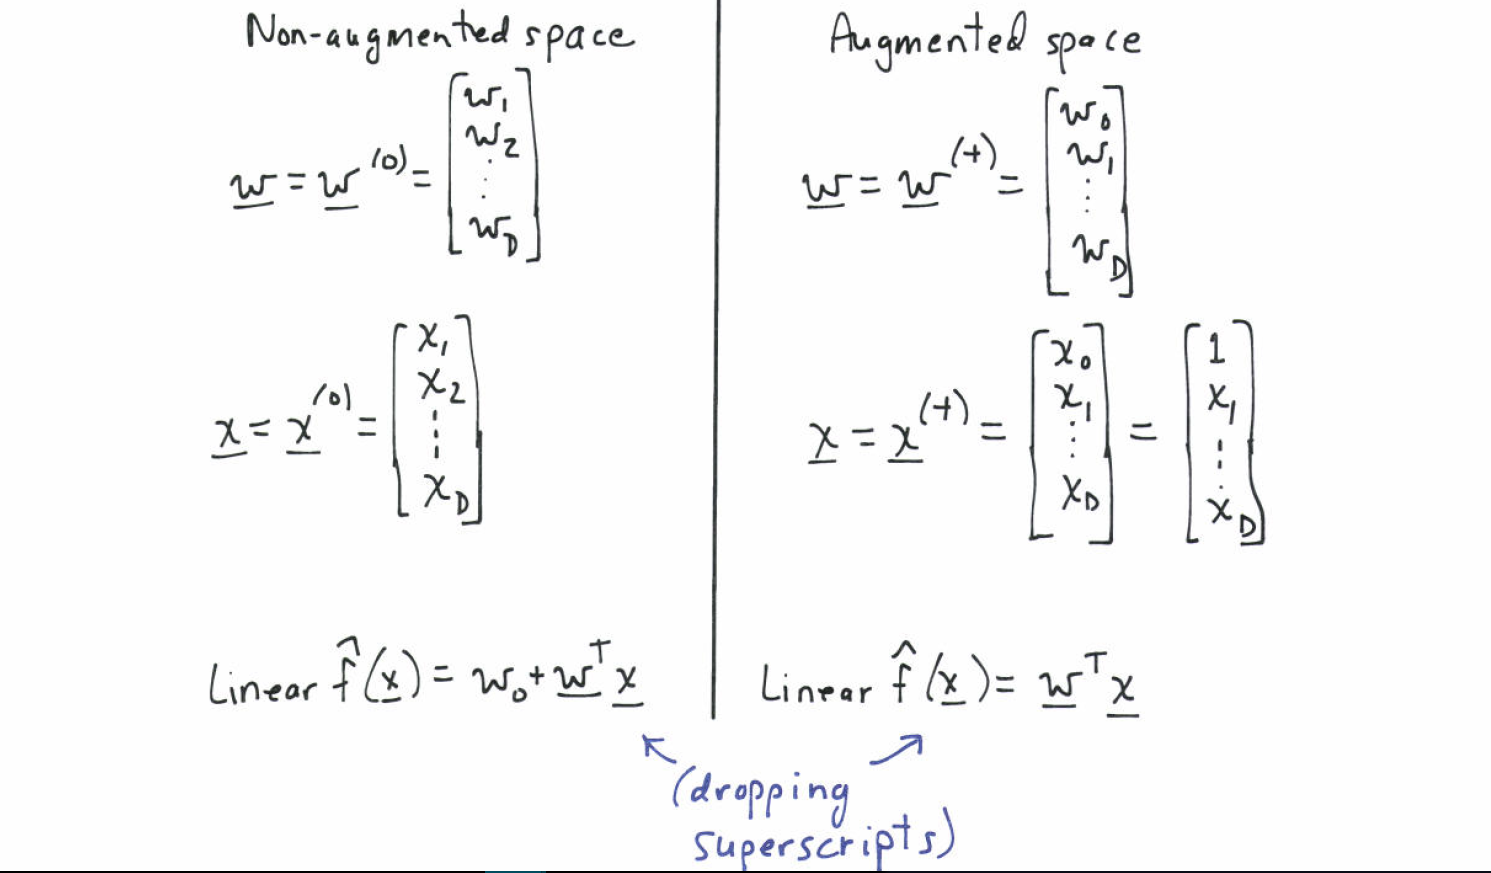 Non-augmented space
w = w^(0) = [w_1 w_2 ⋮ w_D]
x = x^(0) = [x_1 x_2 ⋮ x_D]
Linear f̂(x) = w_0 + w^T x
Augmented space
w = w^(+) = [w_0 w_1 ⋮ w_D]
x = x^(+) = [x_0 x_1 ⋮ x_D] = [1 x_1 ⋮ x_D]
Linear f̂(x) = w^T x
(dropping
superscripts)